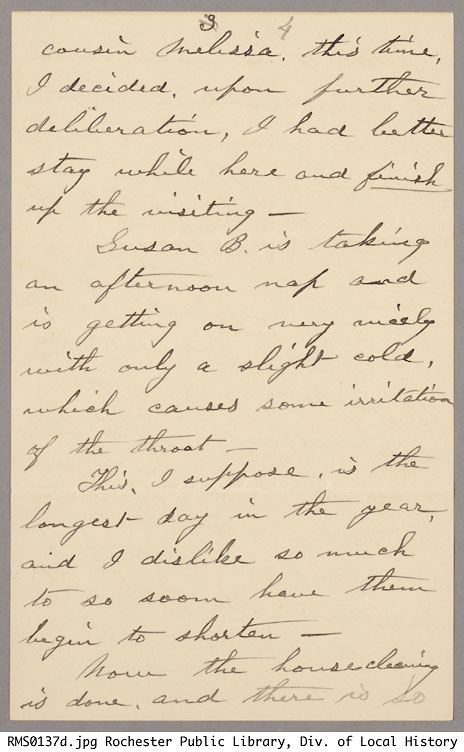 3 4
cousin Melissa. this time,
I decided, upon further
deliberation, I had better
stay while here and finish
up the visiting —
Susan B. is taking
an afternoon nap and
is getting on very nicely
with only a slight cold,
which causes some irritation
of the throat —
This, I suppose, is the
longest day in the year,
and I dislike so much
to so soom have them
begin to shorten —
Now the house cleaning
is done, and there is so
RMS0137d.jpg Rochester Public Library, Div. of Local History